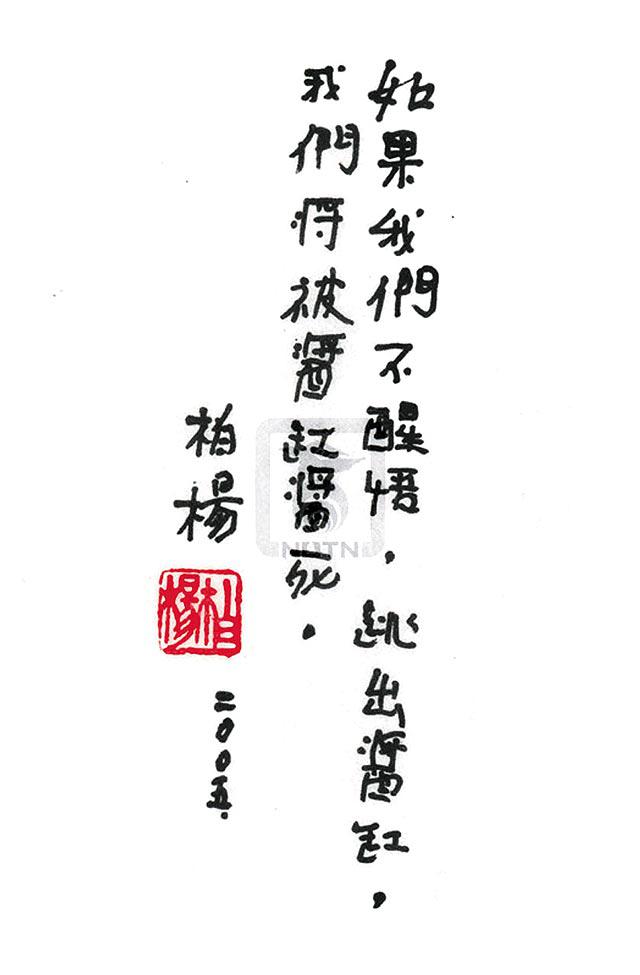 如果我們不醒悟，跳出醬缸，
我們將被醬缸醬死。
柏楊
柏楊
二〇〇五.
NMTN